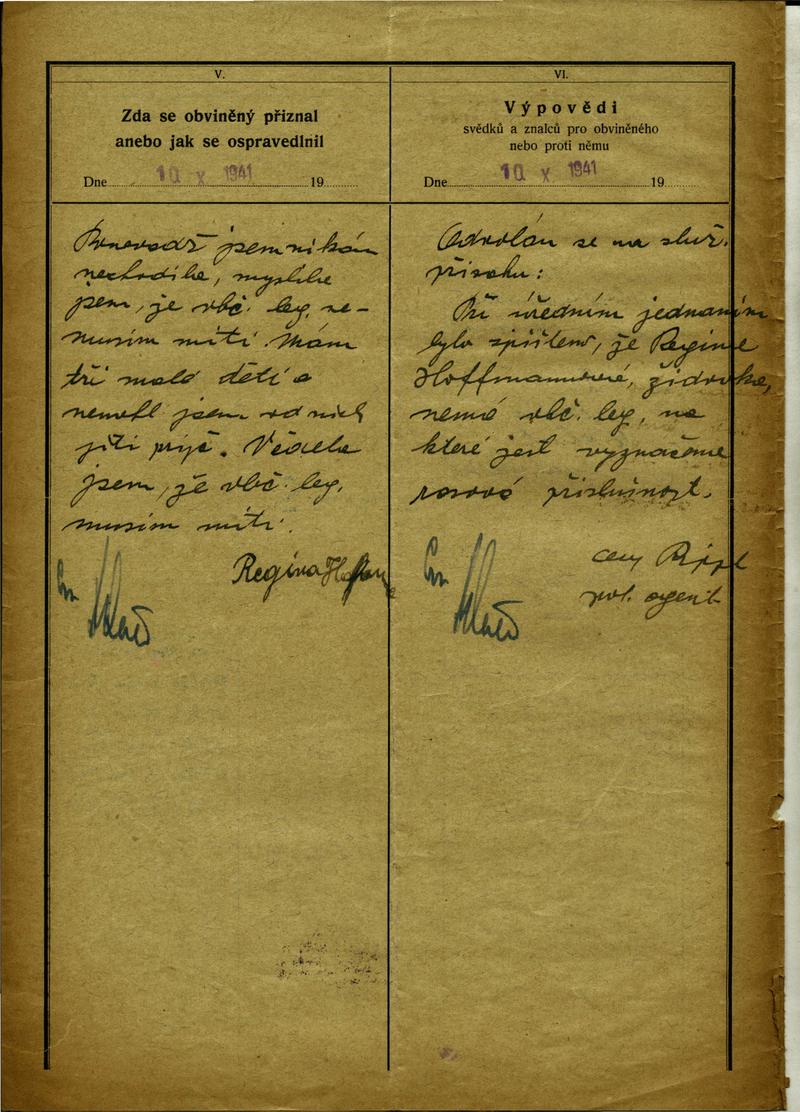 V.
Zda se obviněný přiznal
anebo jak se ospravedlnil
Dne 10 X 1941 19
Ponevadž jsem nikám
nechodila, myslila
jsem, že obč. leg. ne-
musím míti. Mám
tři malé děti a
nemohl jsem od nich
jíti pryč. Věděla
jsem, že obč. leg.
musím míti.
Regina
VI.
Výpovědi
svědků a znalců pro obviněného
nebo proti němu
Dne 10 X 1941 19
Odvolán se na služ.
přísahu:
Při úředním jednaním
bylo zjištěno, že Regina
Hoffmannová, židovka,
nemá obč. leg, na
které jest vyznačena
rasová příslušnost.
pol. agent